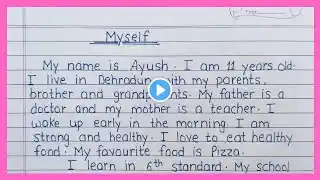 Myself
My name is Ayush. I am 11 years old.
I live in Dehradun with my parents,
brother and grandparents. My father is a
doctor and my mother is a teacher. I
woke up early in the morning. I am
strong and healthy. I love to eat healthy
food. My favourite food is Pizza.
I learn in 6th standard. My school